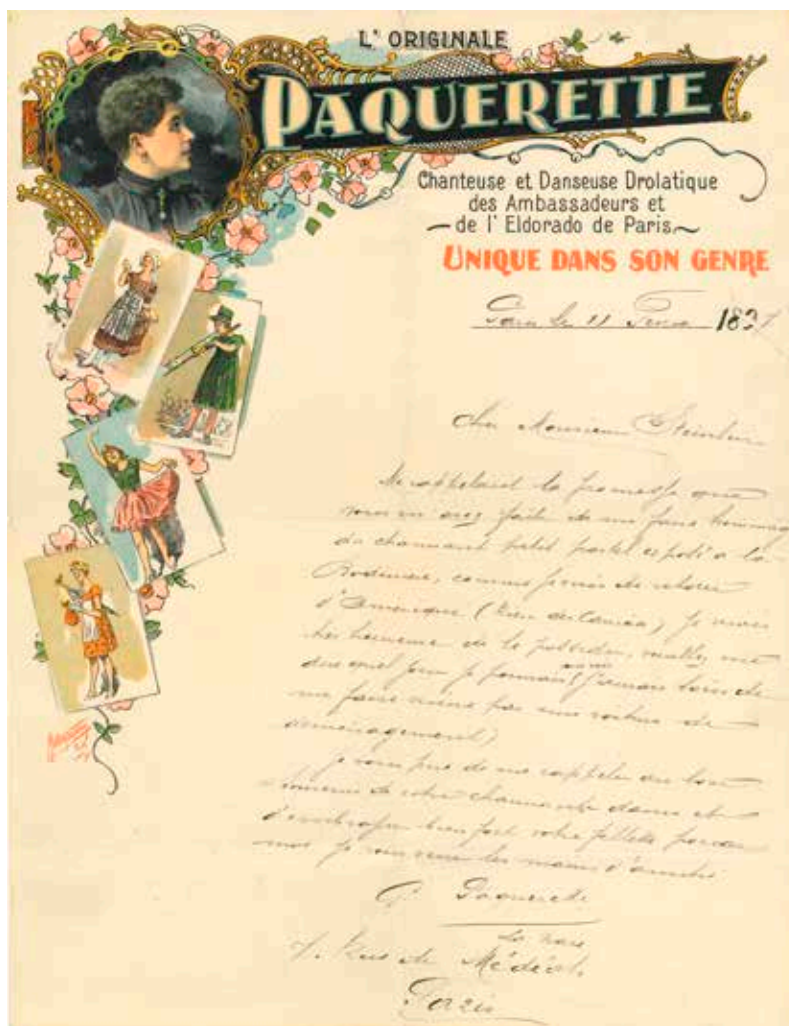 L'ORIGINALE
PAQUERETTE
Chanteuse et Danseuse Drolatique
des Ambassadeurs et
de l'Eldorado de Paris
UNIQUE DANS SON GENRE
Paris le 11 189
Cher Monsieur Steinlen
Me rappelant la promesse que
vous m'avez faite de me faire hommage
du charmant petit pastel exposé à la
Bodinière, comme je viens de retour
d'Amérique (rien des Canaries) je serais
très heureuse de le posséder, veuillez me
dire quel jour je pourrais j'aurais soin de
me faire suivre par une voiture de
déménagement)
Je vous prie de me rappeler au bon
souvenir de votre charmante dame et
d'embrasser bien fort votre fillette pour
moi je vous serre les mains d'amitié
Paquerette
Rue de Médéah
Paris